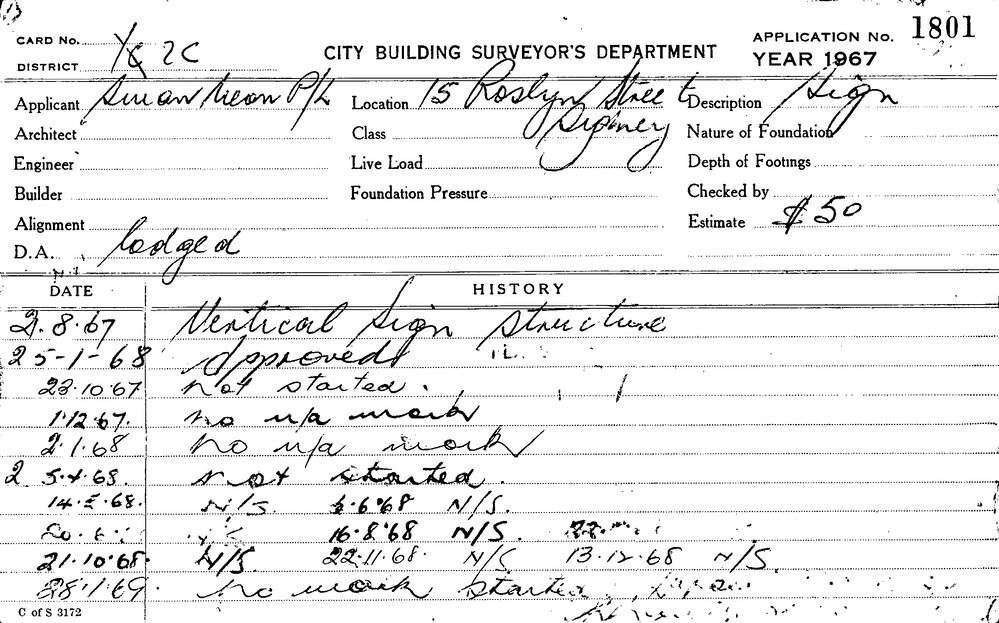 CARD No.
CITY BUILDING SURVEYOR'S DEPARTMENT
APPLICATION No. 1801
DISTRICT 2C
YEAR 1967
Applicant Swan Neon P/L
Location 15 Roslyn Street Sydney
Description Sign
Architect
Class
Nature of Foundation
Engineer
Live Load
Depth of Footings
Builder
Foundation Pressure
Checked by
Alignment
Estimate $50
D.A. lodged
DATE HISTORY
2.8.67 Vertical Sign Structure
25-1-68 Approved
23.10.67 not started.
1.12.67. no u/a work
2.1.68 no u/a work
5.4.68. not started.
14.5.68. N/S. 6.6.68 N/S.
16.8.68 N/S.
21.10.68. N/S. 22.11.68. N/S 13.12.68 N/S.
28.1.69. no work started
C of S 3172